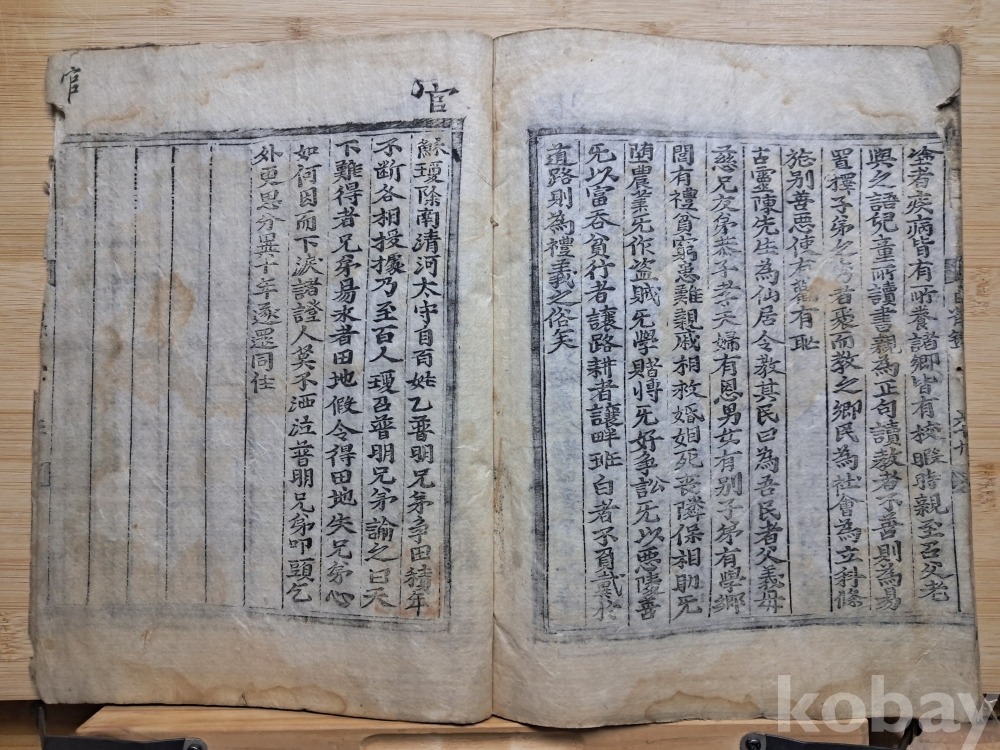 塗者疾病皆有所養諸鄉皆有校暇時親至召父老
與之語兒童所讀書親為正句讀教者不善則為易
置擇子弟之秀者聚而教之鄉民為社會為立科條
旌別善惡使有勸有恥
古靈陳先生為仙居令教其民曰為吾民者父義母
慈兄友弟恭子孝夫婦有恩男女有別子弟有學鄉
閭有禮貧窮患難親戚相救婚姻死喪隣保相助无
堕農業无作盜賊无學賭博无好爭訟无以惡陵善
无以富吞貧行者讓路耕者讓畔班白者不負戴於
道路則為禮義之俗矣
官
蘇瓊除南清河太守自百姓乙普明兄弟爭田積年
不斷各相援據乃至百人瓊召普明兄弟諭之曰天
下難得者兄弟易求者田地假令得田地失兄弟心
如何因而下淚諸證人莫不洒泣普明兄弟叩頭乞
外更思分異十年遂還同住
官
kobay